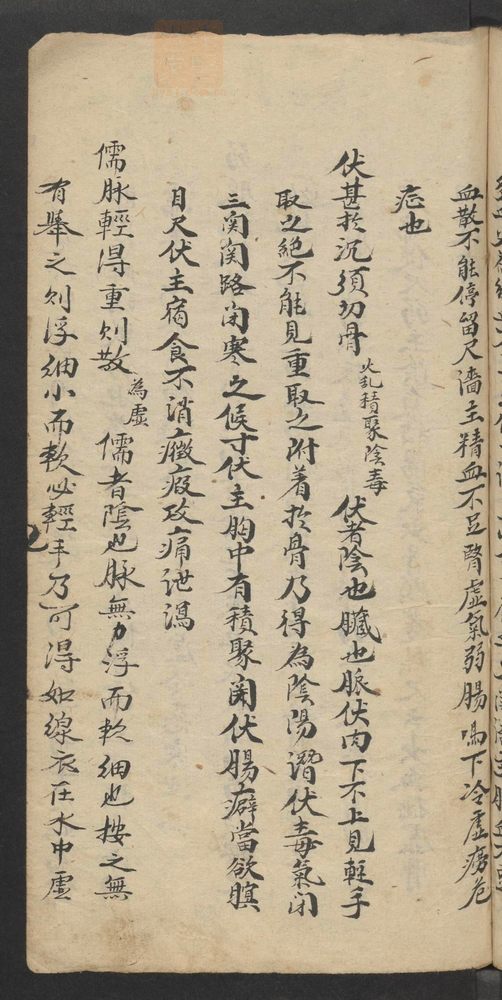 血散不能停留尺濇主精血不足腎虛氣弱腸鳴下冷虛瘵危
症也
伏甚扵沉須切骨 火乱積聚陰毒 伏者陰也臟也脈伏肉下不上見軽手
取之絶不能見重取之附着扵骨乃得為陰陽潛伏毒氣闭
三関関路闭寒之候寸伏主胸中有積聚関伏腸癖當欲瞑
目尺伏主宿食不消癥瘕攻痛泄瀉
儒脉輕得重則散 為虛 儒者陰也脉無力浮而軟細也按之無
有舉之則浮細小而軟必輕手乃可得如線衣在水中虛